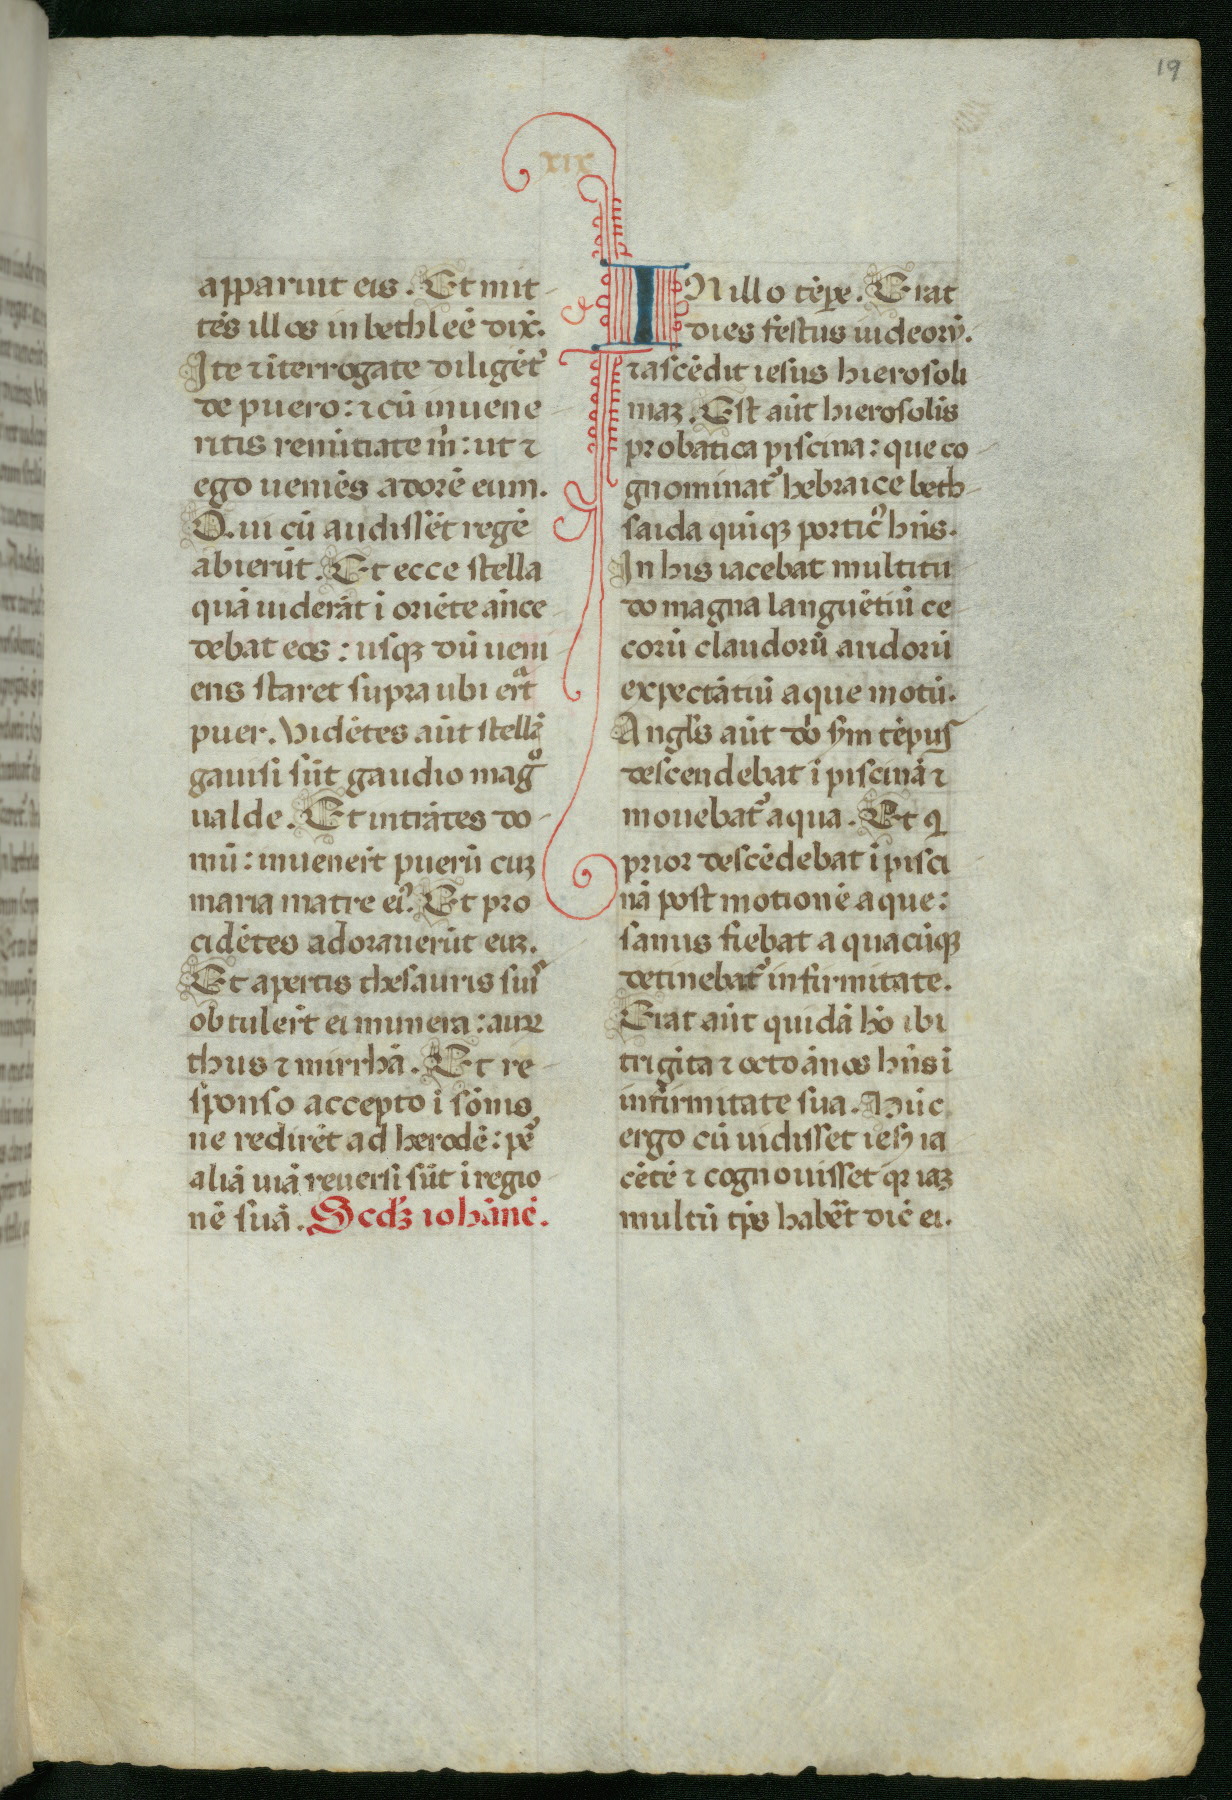 19
xix
apparuit eis. Et mit-
tēs illos in bethleē dix̄.
Ite ⁊ īterrogate diligēt᷑
de puero: ⁊ cū inuene
ritis renūtiate m̄: ut ⁊
ego ueniēs adorē eum.
Qui cū audissēt regē
abierūt. Et ecce stella
quā uiderāt ī oriēte ān̄ce
debat eos: usqꝫ dū ueni
ens staret supra ubi erͣt
puer. Vidētes aūt stellā
gauisi sūt gaudio magͦ
ualde. Et intrātes do-
mū: inuenerт̄ puerū cuꝫ
maria matre eiꝰ. Et pro
cidētes adorauerūt euꝫ.
Et apertis thesauris suis
obtulerт̄ ei munera: auꝝ
thus ⁊ mirrhā. Et re-
sponso accepto ī sōnis
ne redirēt ad herodē: pē
aliā uiā reuersi sūt ī regio
nē suā. Scd̄ꝫ iohānē.
IN illo tēpꝛe. Erat
dies festus iudeoꝝ.
⁊ ascēdit iesus hierosoli
maꝫ. Est aūt hierosolis
probatica piscina: que co
gnominat᷑ hebraice beth-
saida quīqꝫ porticꝰ hn̄s.
In his iacebat multitu
do magna languētiū ce
corū claudorū aridorū
expectātiū aque motū.
Angl̄s aūt dō sm̄ tēpus
descendebat ī piscinā ⁊
mouebat᷑ aqua. Et q̄
prior descēdebat ī pisci
nā post motionē aque:
sanus fiebat a quacūqꝫ
detinebat᷑ infirmitate.
Erat aūt quidā hō ibi
trigīta ⁊ octo ānos hn̄s ī
infirmitate sua. Hūc
ergo cū uidisset iesꝰ ia
cētē ⁊ cognouisset qꝛ iaꝫ
multū tp̄s habēt dic̄ ei.